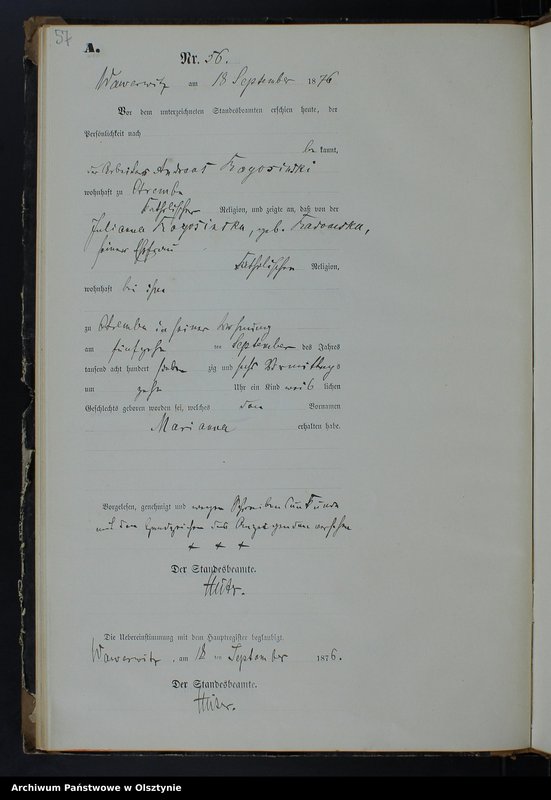 57
A.
Nr. 56.
Wawerwitz am 18 September 1876
Vor dem unterzeichneten Standesbeamten erschien heute, der
Persönlichkeit nach
be kannt,
der Arbeiter Andreas Rogosinski
wohnhaft zu Strembe
katholischer Religion, und zeigte an, daß von der
Julianna Rogosinska, geb.
seiner Ehefrau
katholischer Religion,
wohnhaft bei ihm
zu Strembe in seiner Wohnung
am fünfzehn ten September des Jahres
tausend acht hundert sieben zig und sechs Vormittags
um zehn Uhr ein Kind weib lichen
Geschlechts geboren worden sei, welches den Vornamen
Marianna erhalten habe.
Vorgelesen, genehmigt und wegen Schreibensunkunde
mit den Handzeichen des Anzeigenden versehen
+ + +
Der Standesbeamte.
Die Uebereinstimmung mit dem Hauptregister beglaubigt.
Wawerwitz, am 18 ten September 1876.
Der Standesbeamte.
Archiwum Państwowe w Olsztynie